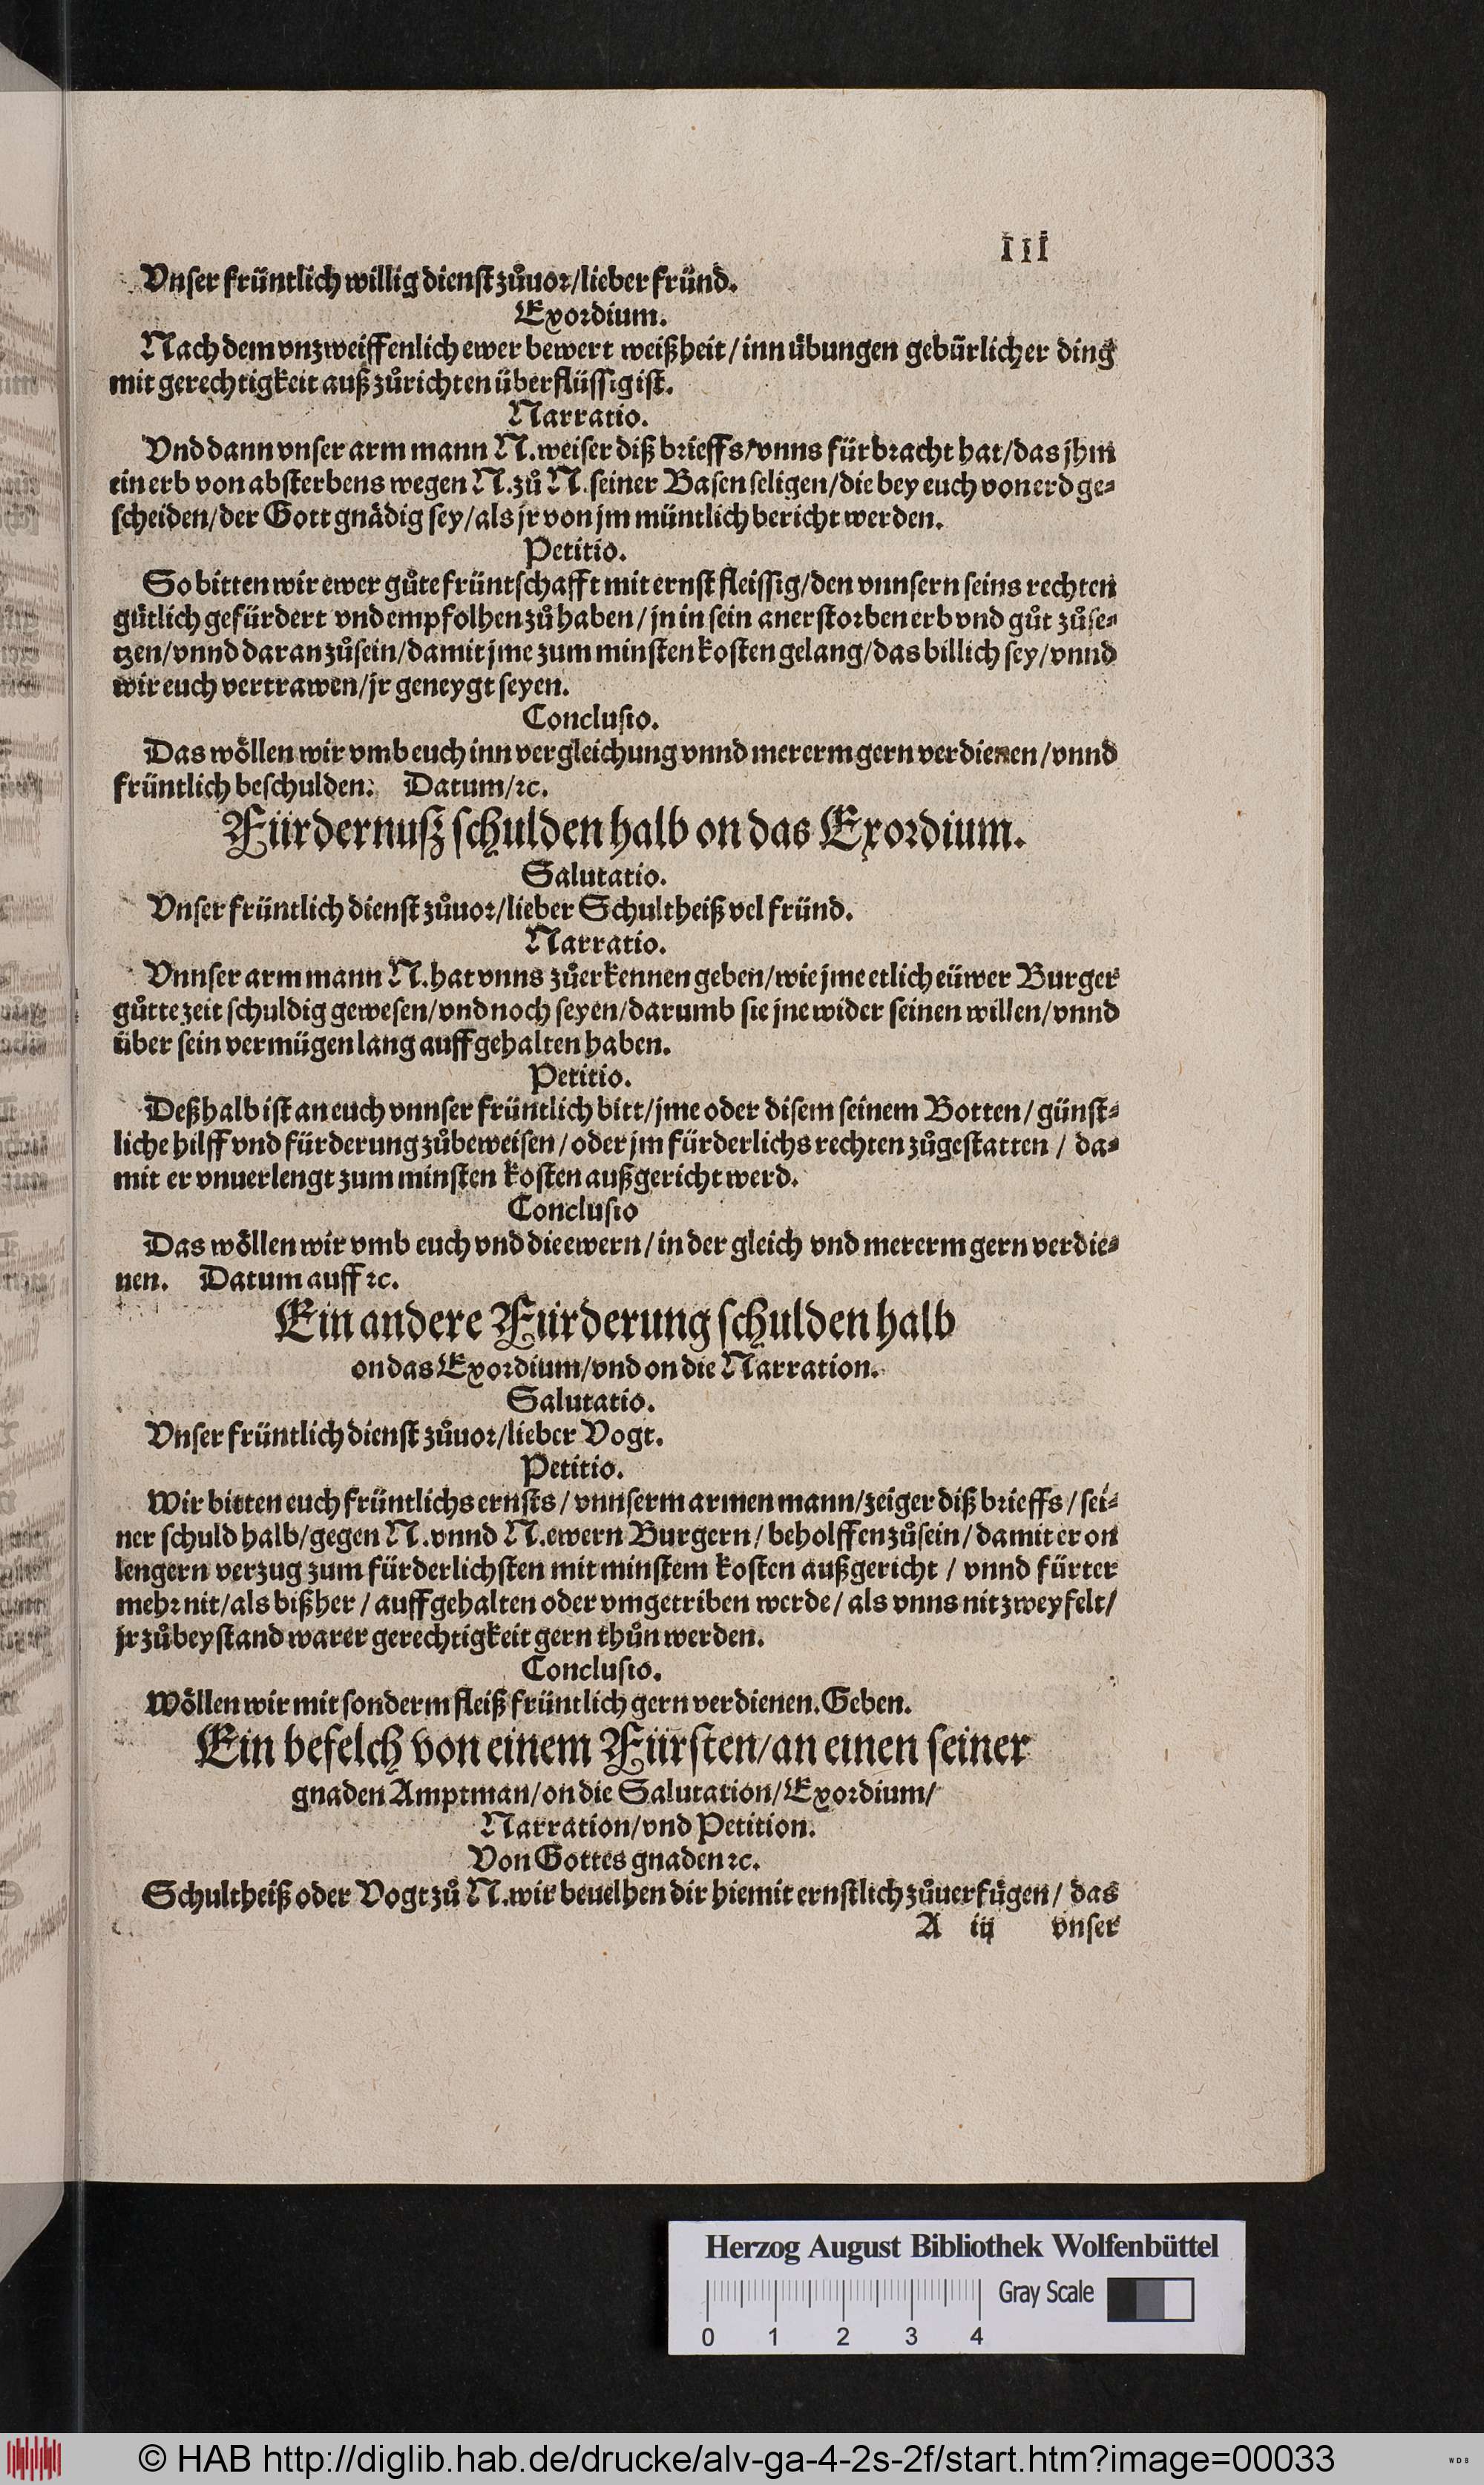 III
Vnſer früntlich willig dienſt zůuor/lieber fründ.
Exordium.
Nach dem vnzweiffenlich ewer bewert weißheit/inn übungen gebürlicher ding
mit gerechtigkeit auß zůrichten überflüſſig iſt.
Narratio.
Vnd dann vnſer arm mann N. weiſer diß brieffs/vnns fürbracht hat/das jhm
ein erb von abſterbens wegen N. zů N. ſeiner Baſen ſeligen/die bey euch von erd ge-
ſcheiden/der Gott gnädig ſey/als jr von jm müntlich bericht werden.
Petitio.
So bitten wir ewer gůte früntſchafft mit ernſt fleiſſig/den vnnſern ſeins rechten
gütlich gefürdert vnd empfolhen zůhaben/jn in ſein anerſtorben erb vnd gůt zůſe-
tzen/vnnd daran zůſein/damit jme zum minſten koſten gelang/das billich ſey/vnnd
wir euch vertrawen/jr geneygt ſeyen.
Concluſio.
Das wöllen wir vmb euch inn vergleichung vnnd mererm gern verdienen/vnnd
früntlich beſchulden. Datum/ꝛc.
Fürdernuß ſchulden halb on das Exordium.
Salutatio.
Vnſer früntlich dienſt zůuor/lieber Schultheiß vel fründ.
Narratio.
Vnnſer arm mann N. hat vnns zůerkennen geben/wie jme etlich eüwer Burger
gůtte zeit ſchuldig geweſen/vnd noch ſeyen/darumb ſie jne wider ſeinen willen/vnnd
über ſein vermügen lang auffgehalten haben.
Petitio.
Deßhalb iſt an euch vnnſer früntlich bitt/jme oder diſem ſeinem Botten/günſt-
liche hilff vnd fürderung zůbeweiſen/oder jm fürderlichs rechten zůgeſtatten/da-
mit er vnuerlengt zum minſten koſten außgericht werd.
Concluſio
Das wöllen wir vmb euch vnd die ewern/in der gleich vnd mererm gern verdie-
nen. Datum auff ꝛc.
Ein andere Fürderung ſchulden halb
on das Exordium/vnd on die Narration.
Salutatio.
Vnſer früntlich dienſt zůuor/lieber Vogt.
Petitio.
Wir bitten euch früntlichs ernſts/vnnſerm armen mann/zeiger diß brieffs/ſei-
ner ſchuld halb/gegen N. vnnd N. ewern Burgern/beholffen zůſein/damit er on
lengern verzug zum fürderlichſten mit minſtem koſten außgericht/vnnd fürter
mehr nit/als bißher/auffgehalten oder vmgetriben werde/als vnns nit zweyfelt/
jr zů beyſtand warer gerechtigkeit gern thůn werden.
Concluſio.
Wöllen wir mit ſonderm fleiß früntlich gern verdienen. Geben.
Ein befelch von einem Fürſten/an einen ſeiner
gnaden Amptman/on die Salutation/Exordium/
Narration/vnd Petition.
Von Gottes gnaden ꝛc.
Schultheiß oder Vogt zů N. wir beuelhen dir hiemit ernſtlich zůuerfügen/das
A iij vnſer
Herzog August Bibliothek Wolfenbüttel
Gray Scale
0 1 2 3 4
© HAB http://diglib.hab.de/drucke/alv-ga-4-2s-2f/start.htm?image=00033
WDB